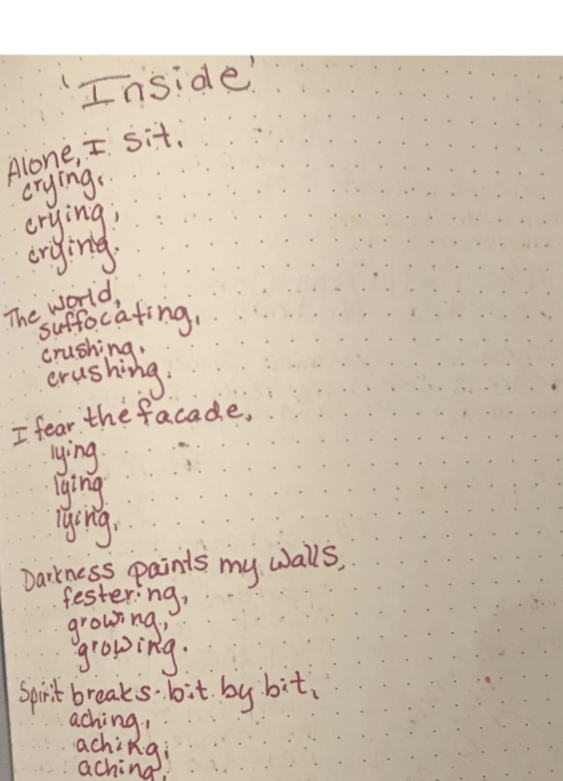 'Inside'
Alone, I sit.
crying,
crying,
crying.
The world,
suffocating,
crushing,
crushing.
I fear the facade,
lying
lying
lying,
Darkness paints my walls,
festering,
growing,
growing.
Spirit breaks bit by bit,
aching,
aching,
aching,